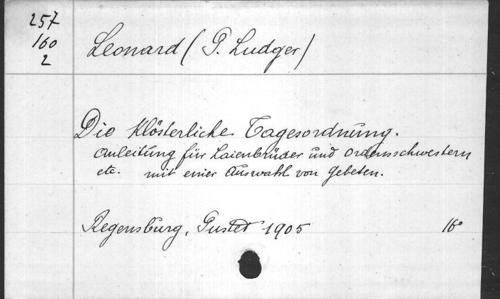 257
160
2
Leonard (P. Ludger)
Die Klösterliche Tagesordnung.
Anleitung für Laienbrüder und Ordensschwestern
etc. mit einer Auswahl von Gebeten.
Regensburg, Pustet 1905 16°